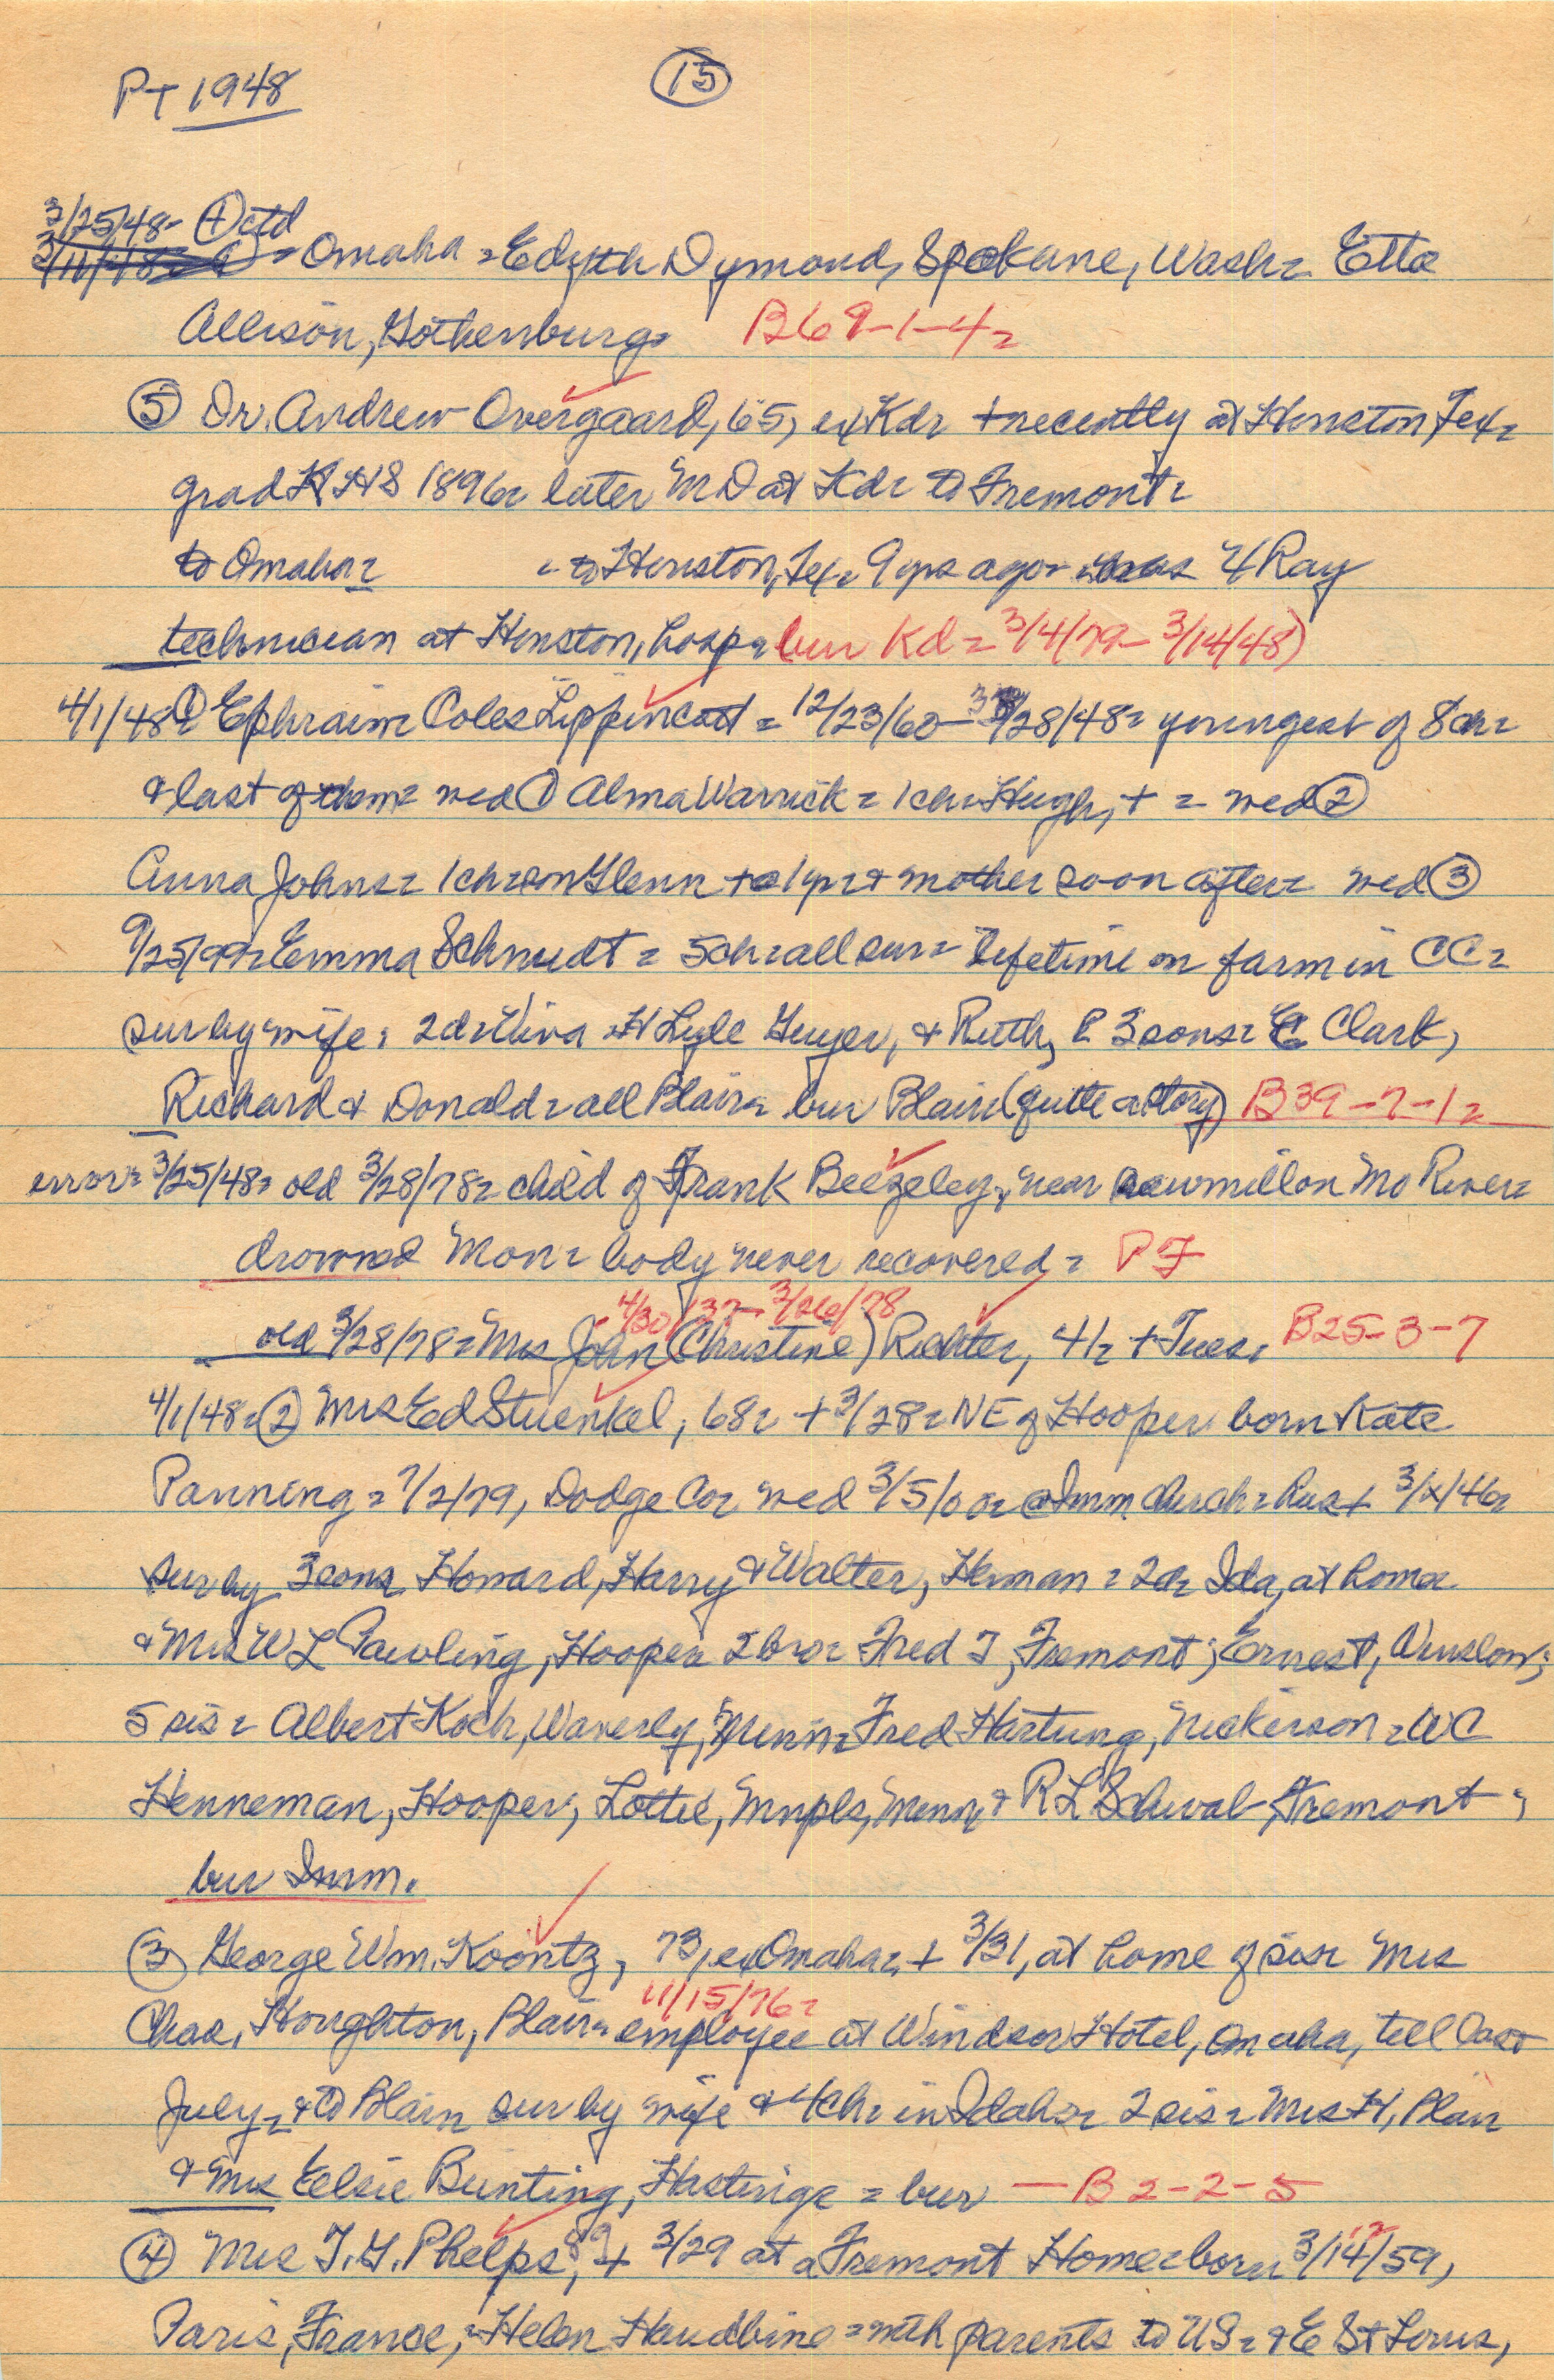 PT 1948
15
3/25/48- 4 ctd
= Omaha = Edyth Dymond, Spokane, Wash= Etta
Allison, Gothenburg= B69-1-4=
5 Dr. Andrew Overgaard, 65, ex Kd= + recently at Houston Tex=
grad KHS 1896= later MD at Kd= to Fremont=
to Omaha= - to Houston, Tex= 9 yrs ago= was X Ray
technician at Houston, hosp= bur Kd= 3/4/79- 3/14/48)
4/1/48= 1 Ephraim Coles Lippincott = 12/23/60- 3/28/48= youngest of 8 ch=
& last of them= wed 1 Alma Warrick = 1 ch= Hugh, + = wed 2
Anna Johns= 1 ch= son Glenn + @ 1 yr= & mother soon after= wed 3
9/25/99= Emma Schmidt = 5 ch= all sur= lifetime on farm in CC=
sur by wife, 2 d= Viva = H Lyle Guyer, & Ruth, & 3 sons= E Clark,
Richard & Donald= all Blair= bur Blair (quite a story) B39-7-1=
error= 3/25/48= old 3/28/78= child of Frank Beezeley, near sawmill on Mo River=
drowned Mon= body never recovered = PF
- 4/30/37- 3/26/78
old 3/28/78= Mrs John (Christine) Richter, 41= + Tues= B25-3-7
4/1/48= 2 Mrs Ed Stuenkel, 68= + 3/28= NE of Hooper born Kate
Panning = 7/2/79, Dodge Co= wed 3/5/00= @ Imm church= hus + 3/x/46=
sur by 3 sons Howard, Harry & Walter, Herman = 2 d= Ida, at home
& Mrs W L Pawling, Hooper= 2 bro= Fred J, Fremont; Ernest, Winslow;
5 sis = Albert Koch, Waverly, Minn= Fred Hartung, Nickerson = WC
Henneman, Hooper; Lottie, Mnpls, Minn, & R L Schwab, Fremont;
bur Imm.
3 George Wm. Koontz, 73, ex Omaha=, + 3/31, at home of sis= Mrs
11/15/76=
Chas. Houghton, Blair= employee at Windsor Hotel, Omaha, till last
July= & to Blair sur by wife & 4 ch= in Idaho= 2 sis = Mrs H, Blair
& Mrs Elsie Bunting, Hastings = bur — B 2-2-5
4 Mrs T. G. Phelps, 89, + 3/29 at a Fremont Home= born 3/14/59,
Paris, France, = Helen = with parents to US= & E St Louis,